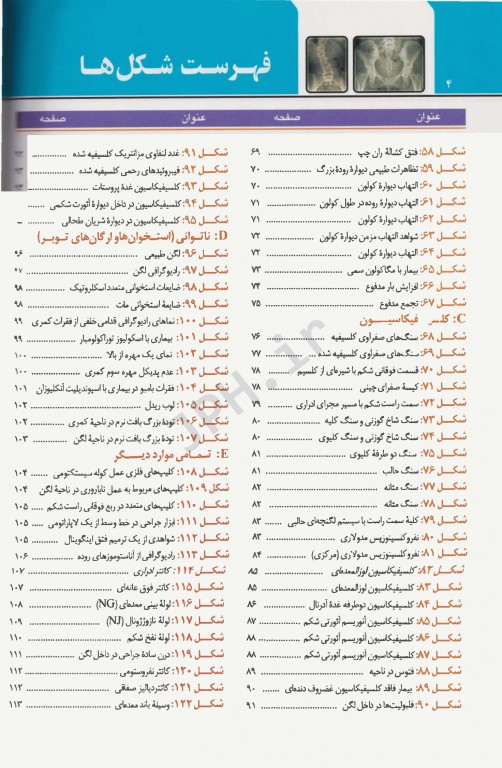 فهرست شکل‌ها
۴
عنوان صفحه
شکل ۵۸: فتق کشالهٔ ران چپ ۶۹
شکل ۵۹: تظاهرات طبیعی دیوارهٔ رودهٔ بزرگ ۷۰
شکل ۶۰: التهاب دیوارهٔ کولون ۷۰
شکل ۶۱: التهاب دیوارهٔ روده در طول کولون ۷۱
شکل ۶۲: التهاب دیوارهٔ کولون ۷۱
شکل ۶۳: شواهد التهاب مزمن دیوارهٔ کولون ۷۲
شکل ۶۴: التهاب دیوارهٔ کولون ۷۲
شکل ۶۵: بیمار با مگاکولون سمی ۷۳
شکل ۶۶: افزایش بار مدفوع ۷۴
شکل ۶۷: تجمع مدفوع ۷۵
C: کلسیفیکاسیون
شکل ۶۸: سنگ‌های صفراوی کلسیفیه ۷۶
شکل ۶۹: سنگ‌های صفراوی کلسیفیه شده ۷۷
شکل ۷۰: قسمت فوقانی شکم با شیره‌ای از کلسیم ۷۸
شکل ۷۱: کیسهٔ صفرای چینی ۷۸
شکل ۷۲: سمت راست شکم با مسیر مجرای ادراری ۷۹
شکل ۷۳: سنگ شاخ گوزنی و سنگ کلیه ۸۰
شکل ۷۴: سنگ شاخ گوزنی و سنگ کلیوی ۸۰
شکل ۷۵: سنگ دو طرفهٔ کلیوی ۸۱
شکل ۷۶: سنگ حالب ۸۱
شکل ۷۷: سنگ مثانه ۸۲
شکل ۷۸: سنگ مثانه ۸۲
شکل ۷۹: کلیهٔ سمت راست با سیستم لگنچه‌ای حالبی ۸۳
شکل ۸۰: نفروکلسینوزیس مدولاری ۸۳
شکل ۸۱: نفروکلسینوزیس مدولاری (مرکزی) ۸۴
شکل ۸۲: کلسیفیکاسیون لوزالمعده‌ای ۸۵
شکل ۸۳: کلسیفیکاسیون لوزالمعده‌ای ۸۵
شکل ۸۴: کلسیفیکاسیون دوطرفه غدهٔ آدرنال ۸۶
شکل ۸۵: کلسیفیکاسیون آنوریسم آئورتی شکم ۸۷
شکل ۸۶: کلسیفیکاسیون آنوریسم آئورتی شکم ۸۸
شکل ۸۷: کلسیفیکاسیون آنوریسم آئورتی شکم ۸۸
شکل ۸۸: فتوس در ناحیه ۸۹
شکل ۸۹: بیمار فاقد کلسیفیکاسیون غضروف دنده‌ای ۹۰
شکل ۹۰: فلبولیت‌ها در داخل لگن ۹۱
عنوان صفحه
شکل ۹۱: غدد لنفاوی مزانتریک کلسیفیه شده
شکل ۹۲: فیبروئیدهای رحمی کلسیفیه شده
شکل ۹۳: کلسیفیکاسیون غدهٔ پروستات
شکل ۹۴: کلسیفیکاسیون در داخل دیوارهٔ آئورت شکمی
شکل ۹۵: کلسیفیکاسیون در دیوارهٔ شریان طحالی
D: ناتوانی (استخوان‌ها و ارگان‌های توپر)
شکل ۹۶: لگن طبیعی ۹۶
شکل ۹۷: رادیوگرافی لگن ۹۷
شکل ۹۸: ضایعات استخوانی متعدد اسکلروتیک ۹۸
شکل ۹۹: ضایعهٔ استخوانی مات ۹۸
شکل ۱۰۰: نماهای رادیوگرافی قدامی خلفی از فقرات کمری ۹۹
شکل ۱۰۱: بیماری با اسکولیوز توراکولومبار ۹۹
شکل ۱۰۲: نمای یک مهره از بالا ۱۰۰
شکل ۱۰۳: عدم پدیکل مهره سوم کمری ۱۰۰
شکل ۱۰۴: فقرات بامبو در بیماری با اسپوندیلیت آنکلیوزان ۱۰۱
شکل ۱۰۵: لوب ریدل ۱۰۲
شکل ۱۰۶: تودهٔ بزرگ بافت نرم در ناحیهٔ کمری ۱۰۲
شکل ۱۰۷: تودهٔ بزرگ بافت نرم در ناحیهٔ لگن ۱۰۳
E: تمامی موارد دیگر
شکل ۱۰۸: کلیپ‌های فلزی عمل کوله سیستکتومی ۱۰۴
شکل ۱۰۹: کلیپ‌های مربوط به عمل ناباروری در ناحیهٔ لگن ۱۰۴
شکل ۱۱۰: کلیپ‌های متعدد در ربع فوقانی راست شکم ۱۰۵
شکل ۱۱۱: ابزار جراحی در خط وسط از یک لاپاراتومی ۱۰۵
شکل ۱۱۲: شواهدی از یک ترمیم فتق اینگوینال ۱۰۵
شکل ۱۱۳: رادیوگرافی از آناستوموزهای روده ۱۰۶
شکل ۱۱۴: کاتتر ادراری ۱۰۷
شکل ۱۱۵: کاتتر فوق عانه‌ای ۱۰۷
شکل ۱۱۶: لولهٔ بینی معده‌ای (NG) ۱۰۸
شکل ۱۱۷: لولهٔ نازوژژونال (NJ) ۱۰۹
شکل ۱۱۸: لولهٔ نفخ شکم ۱۱۰
شکل ۱۱۹: درن سادهٔ جراحی در داخل لگن ۱۱۱
شکل ۱۲۰: کاتتر نفروستومی ۱۱۲
شکل ۱۲۱: کاتتر دیالیز صفاقی ۱۱۲
شکل ۱۲۲: وسیلهٔ باند معده‌ای ۱۱۳
JPH.ir